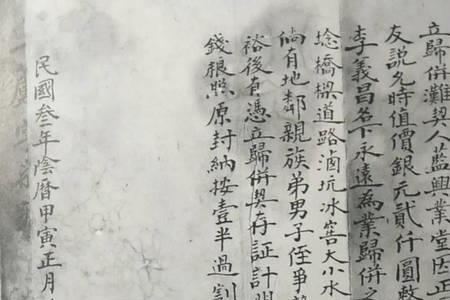 立歸併灘契人藍興業堂因正
友說允時值價銀元貳仟圓整
李義昌名下永遠為業歸併之
埝橋樑道路滷坑冰窖大小水
倘有地鄰親族弟男子侄爭
裕後有憑立歸併契存証計
錢粮照原封納按壹半過割
民國叁年陰曆甲寅正月